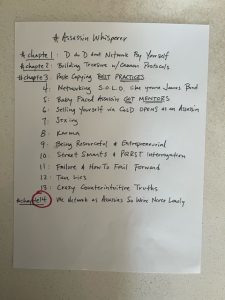 # Assassin Whisperer
# chapter 1 : D do D dont Network Pay Yourself
# chapter 2 : Building Treasure w/ Common Protocols
# chapter 3 : Base Copying BEST PRACTICES
4 : Networking S.O.L.D. like youre James Bond
5 : Baby Faced Assassins GOT MENTORS
6 : Selling Yourself via CoLD OPENS as an Assassin
7 : Sexing
8 : Karma
9 : Being Resourceful & Entrepreneurial
10 : Street Smarts & Interrogation
11 : Failure & How To Fail Forward
12 : Lies
13 : Crazy Counterintuitive Truths
# chapter 14 We Network as Assassins So We're Never Lonely